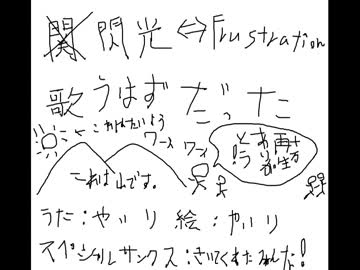 閃光⇔Frustration
歌うはずだった
←これはたいよう
ワーイ ワーイ
十万再生ありがとう!
これは山です。
うた:やいり 絵:やいり
スペシャルサンクス:きいてくれたみんな!